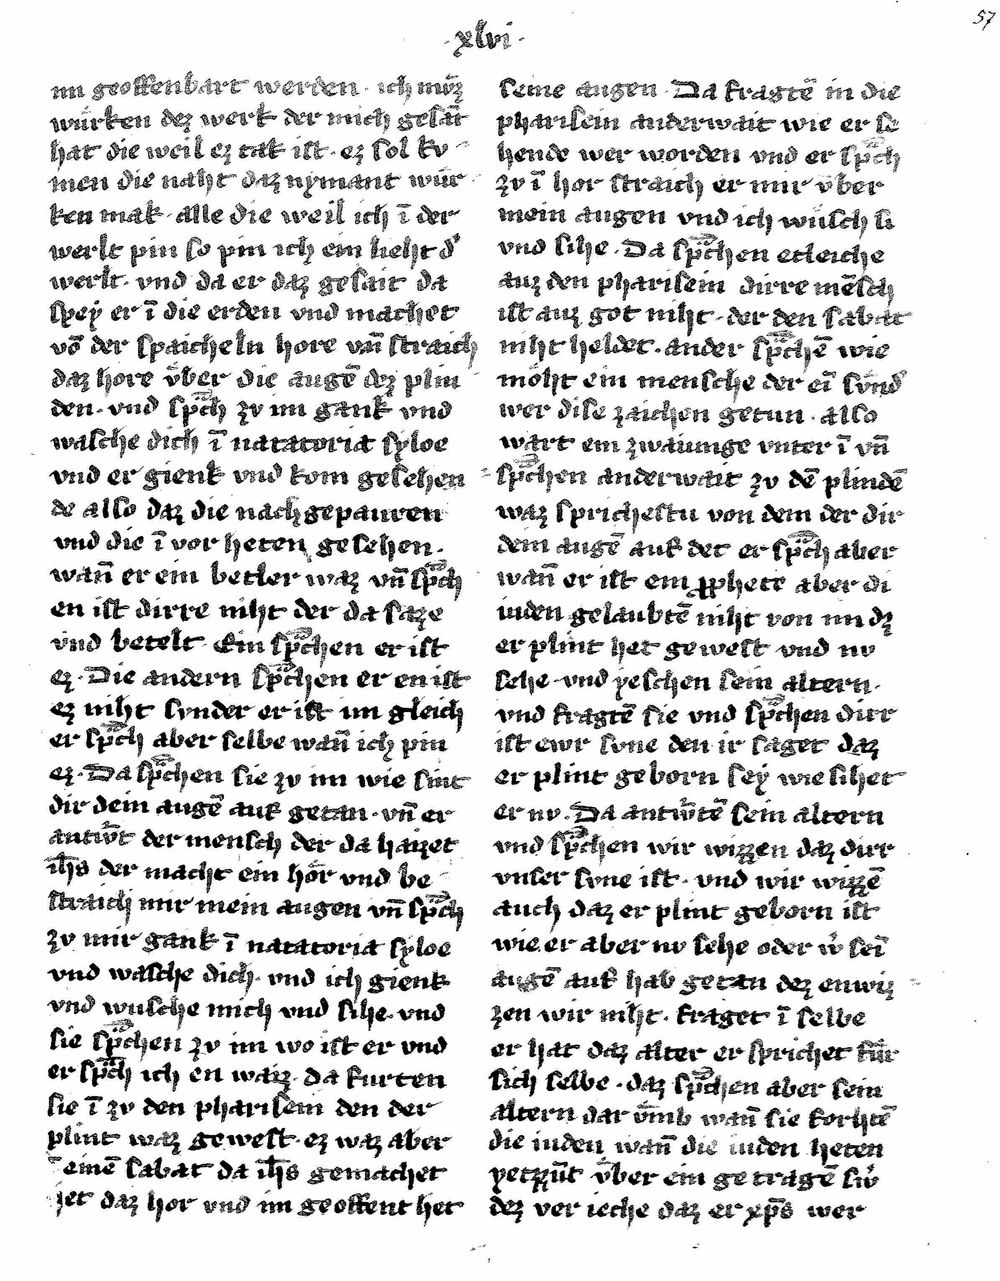 57
·xlvi·
im geoffenbart werden · ich mv̊z
würken dez werk der mich gesāt
hat die weil ez tak ist · ez sol kv
men die naht daz nymant wür
ken mak · alle die weil ich ī der
werlt pin so pin ich ein lieht d͛
werlt · vnd da er daz gesait da
spey er ī die erden vnd machet
vō der spaicheln hore vn̄ straich
daz hore v̊ber die augē dez plin
den · vnd sp̄ch zv im gank vnd
wasche dich ī natatoria syloe
vnd er gienk vnd kom gesehen
de also daz die nachgepauren
vnd die ī vor heten gesehen ·
wan̄ er ein betler waz vn̄ sp̄ch
en ist dirre niht der da saze
vnd betelt · Ein sp̄chen er ist
ez · Die andern sp̄chen er en ist
ez niht svnder er ist im gleich
er sp̄ch aber selbe wan̄ ich pin
ez · Da sp̄chen sie zv im wie sint
dir dein augē auf getan · vn̄ er
antw̄t der mensch der da haizet
ih̄s der macht ein hör vnd be
straich mir mein augen vn̄ sp̄ch
zv mir gank ī natatoria syloe
vnd wasche dich · vnd ich gienk
vnd wusche mich vnd sihe · vnd
sie sp̄chen zv im wo ist er vnd
er sp̄ch ich en waiz · da furten
sie ī zv den pharisein den der
plint waz gewest · ez waz aber
einē sabat da ih̄s gemachet
het daz hor vnd im geoffent het
seine augen · Da fragtē in die
pharisein anderwait wie er se
hende wer worden vnd er sp̄ch
zv ī hor straich er mir v̊ber
mein augen vnd ich wusch si
vnd sihe · Da sp̄chen etleiche
auz den pharisein dirre mēsch
ist auz got niht · der den sabat
niht heldet · ander sp̄chē wie
möht ein mensche der ein̄ svnd͛
wer dise zaichen getun · also
wart ein zwaiunge vnter ī vn̄
sp̄chen anderwait zv dē plindē
waz sprichestu von dem der dir
dein augē auf det er sp̄ch aber
wan̄ er ist ein ꝓphete aber di
iuden gelaubtē niht von im dz
er plint het gewest vnd nv
sehe · vnd yeschen sein altern ·
vnd fragtē sie vnd sp̄chen dirr
ist ewr svne den ir saget daz
er plint geborn sey wie sihet
er nv · Da antw̄tē sein altern
vnd sp̄chen wir wizzen daz dirr
vnser svne ist · vnd wir wizzē
auch daz er plint geborn ist
wie er aber nv sehe oder w͛ sei
augē auf hab getan dez enwiz
zen wir niht · fraget ī selbe
er hat daz alter er sprichet für
sich selbe · daz sp̄chen aber sein
altern dar v̄mb wan̄ sie forhtē
die iuden wan̄ die iuden heten
yetzūt v̊ber ein getragē swͥ
dez ver ieche daz er xp̄s wer